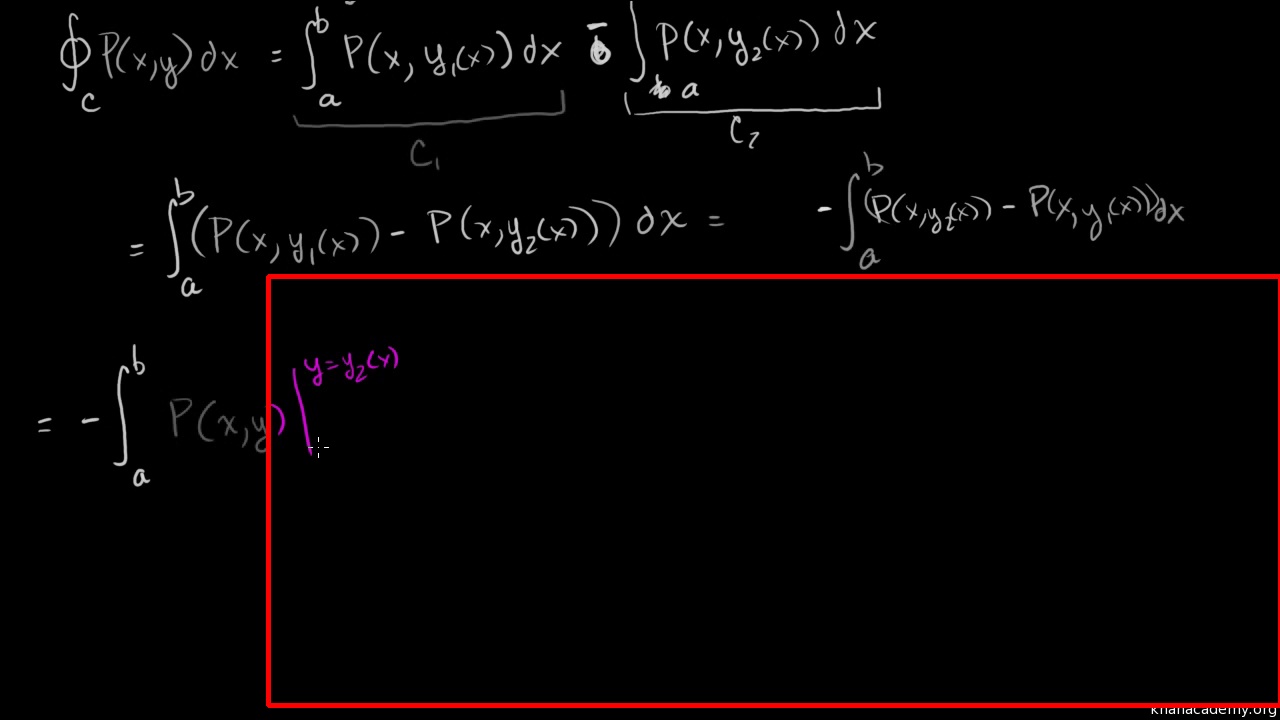 ∮_C P(x,y) dx = ∫_a^b P(x, y₁(x)) dx - ∫_a P(x, y₂(x)) dx
C₁ C₂
= ∫_a^b (P(x, y₁(x)) - P(x, y₂(x))) dx = - ∫_a^b (P(x, y₂(x)) - P(x, y₁(x))) dx
= - ∫_a^b P(x,y) |^{y=y₂(x)}
khanacademy.org